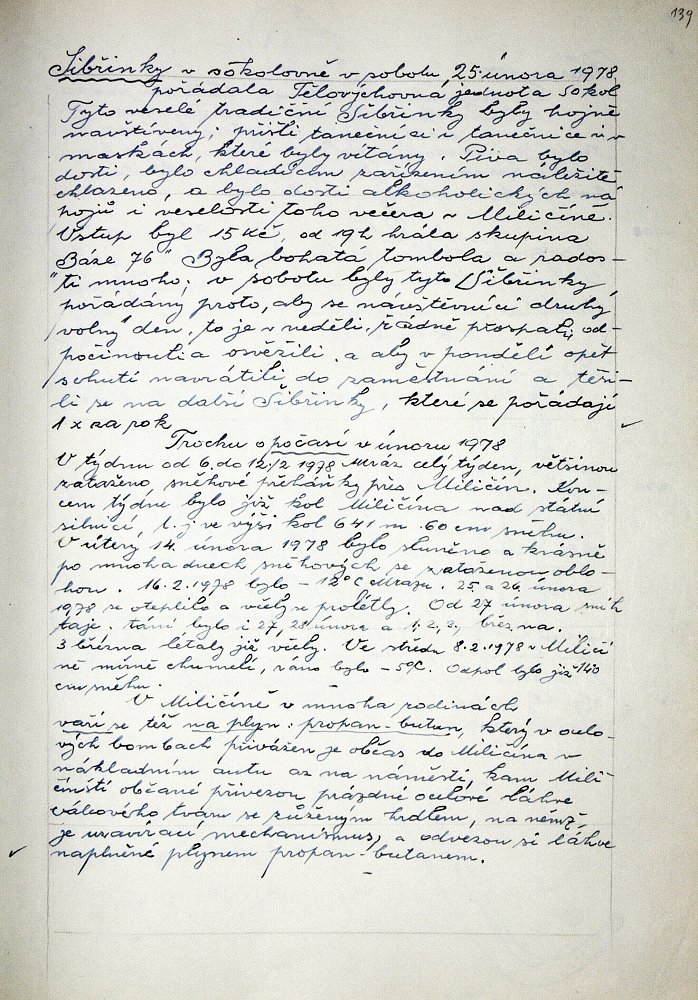 139
Šibřinky v sokolovně v sobotu, 25. února 1978
pořádala Tělovýchovná jednota Sokol
Tyto veselé tradiční Šibřinky byly hojně
navštíveny; přišli tanečníci i tanečnice i v
maskách, které byly vítány. Piva bylo
dosti, bylo chladícím zařízením náležitě
chlazeno, a bylo dosti alkoholických ná
pojů i veselosti toho večera v Miličíně.
Vstup byl 15 Kč, od 19h hrála skupina
Báze 76" Byla bohatá tombola a rados-
ti mnoho; v sobotu byly tyto Šibřinky
pořádány proto, aby se návštěvníci druhý
volný den, to je v neděli, řádně prospali, od-
počinouli a osvěžili a aby v pondělí opět
s chutí navrátili do zaměstnání a těši-
li se na další Šibřinky, které se pořádají
1 x za rok
Trochu o počasí v únoru 1978
V týdnu od 6. do 12./2 1978 mráz celý týden, většinou
zataženo, sněhové přeháňky přes Miličín. Kon-
cem týdnu bylo již kol Miličína nad státní
silnicí, t. j. ve výši kol 641 m . 60 cm sněhu.
V úterý, 14. února 1978 bylo slunečno a krásně
po mnoha dnech sněhových se zataženou oblo-
hou. 16. 2. 1978 bylo - 12°C mrazu. 25. a 26. února
1978 se oteplilo a včely se prolétly. Od 27 února sníh
taje. tání bylo i 27, 28 února a 1. 2. 3. března.
3 března létaly již včely. Ve středu 8. 2. 1978 v Miličí
ně mírně chumelí, ráno bylo - 5°C. Odpol bylo již 140
cm sněhu.
V Miličíně v mnoha rodinách
vaří se též na plyn: propan-butan, který v ocelo-
vých bombách přivážen je občas do Miličína v
nákladním autu až na náměstí, kam Mili
čínští občané přivezou prázdné ocelové láhve
válcového tvaru se zúženým hrdlem, na němž
je uzavírací mechanismus, a odvezou si láhve
naplněné plynem propan-butanem.